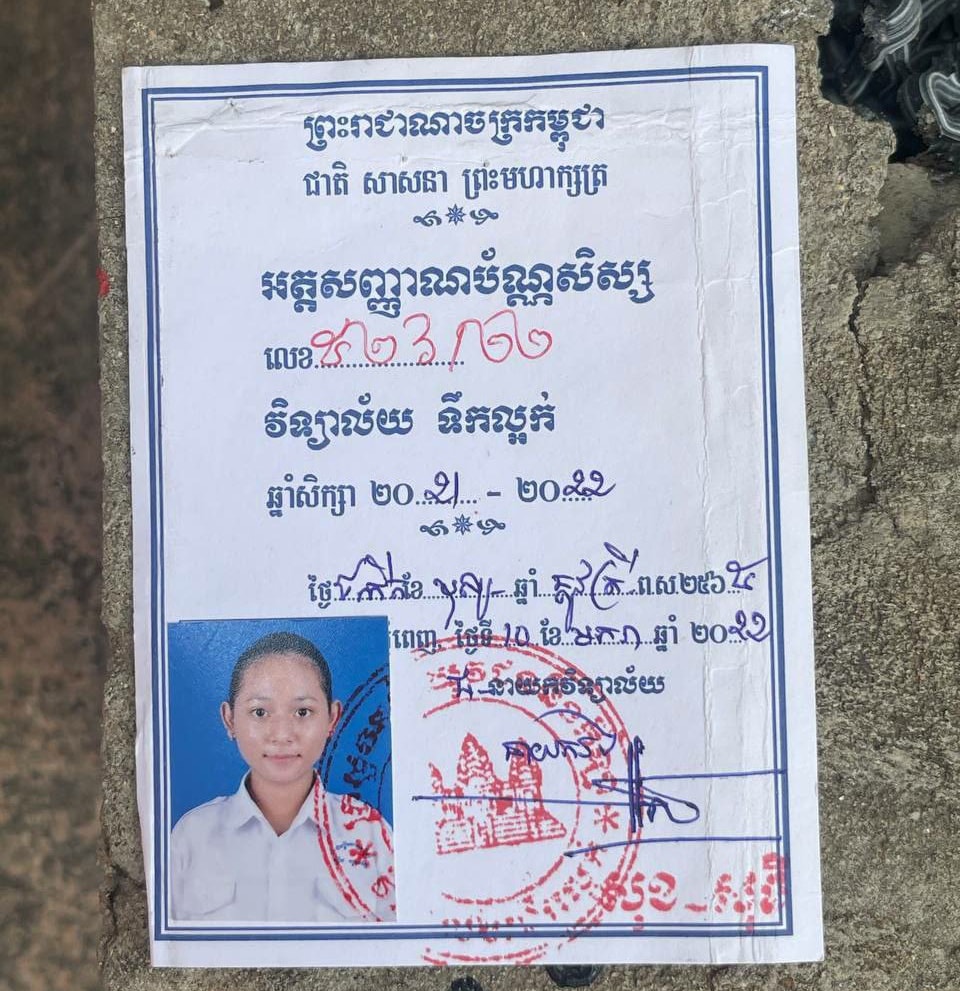 ព្រះរាជាណាចក្រកម្ពុជា
ជាតិ សាសនា ព្រះមហាក្សត្រ
អត្តសញ្ញាណប័ណ្ណសិស្ស
លេខ
វិទ្យាល័យ ទឹកល្អក់
ឆ្នាំសិក្សា ២០២១ - ២០២២
ថ្ងៃ ខែ បុស្ស ឆ្នាំ ឆ្លូវត្រីស័ក ព.ស ២៥៦៥
ពេញ, ថ្ងៃទី ១០ ខែ មករា ឆ្នាំ ២០២២
នាយកវិទ្យាល័យ
នាយករង
សុខ